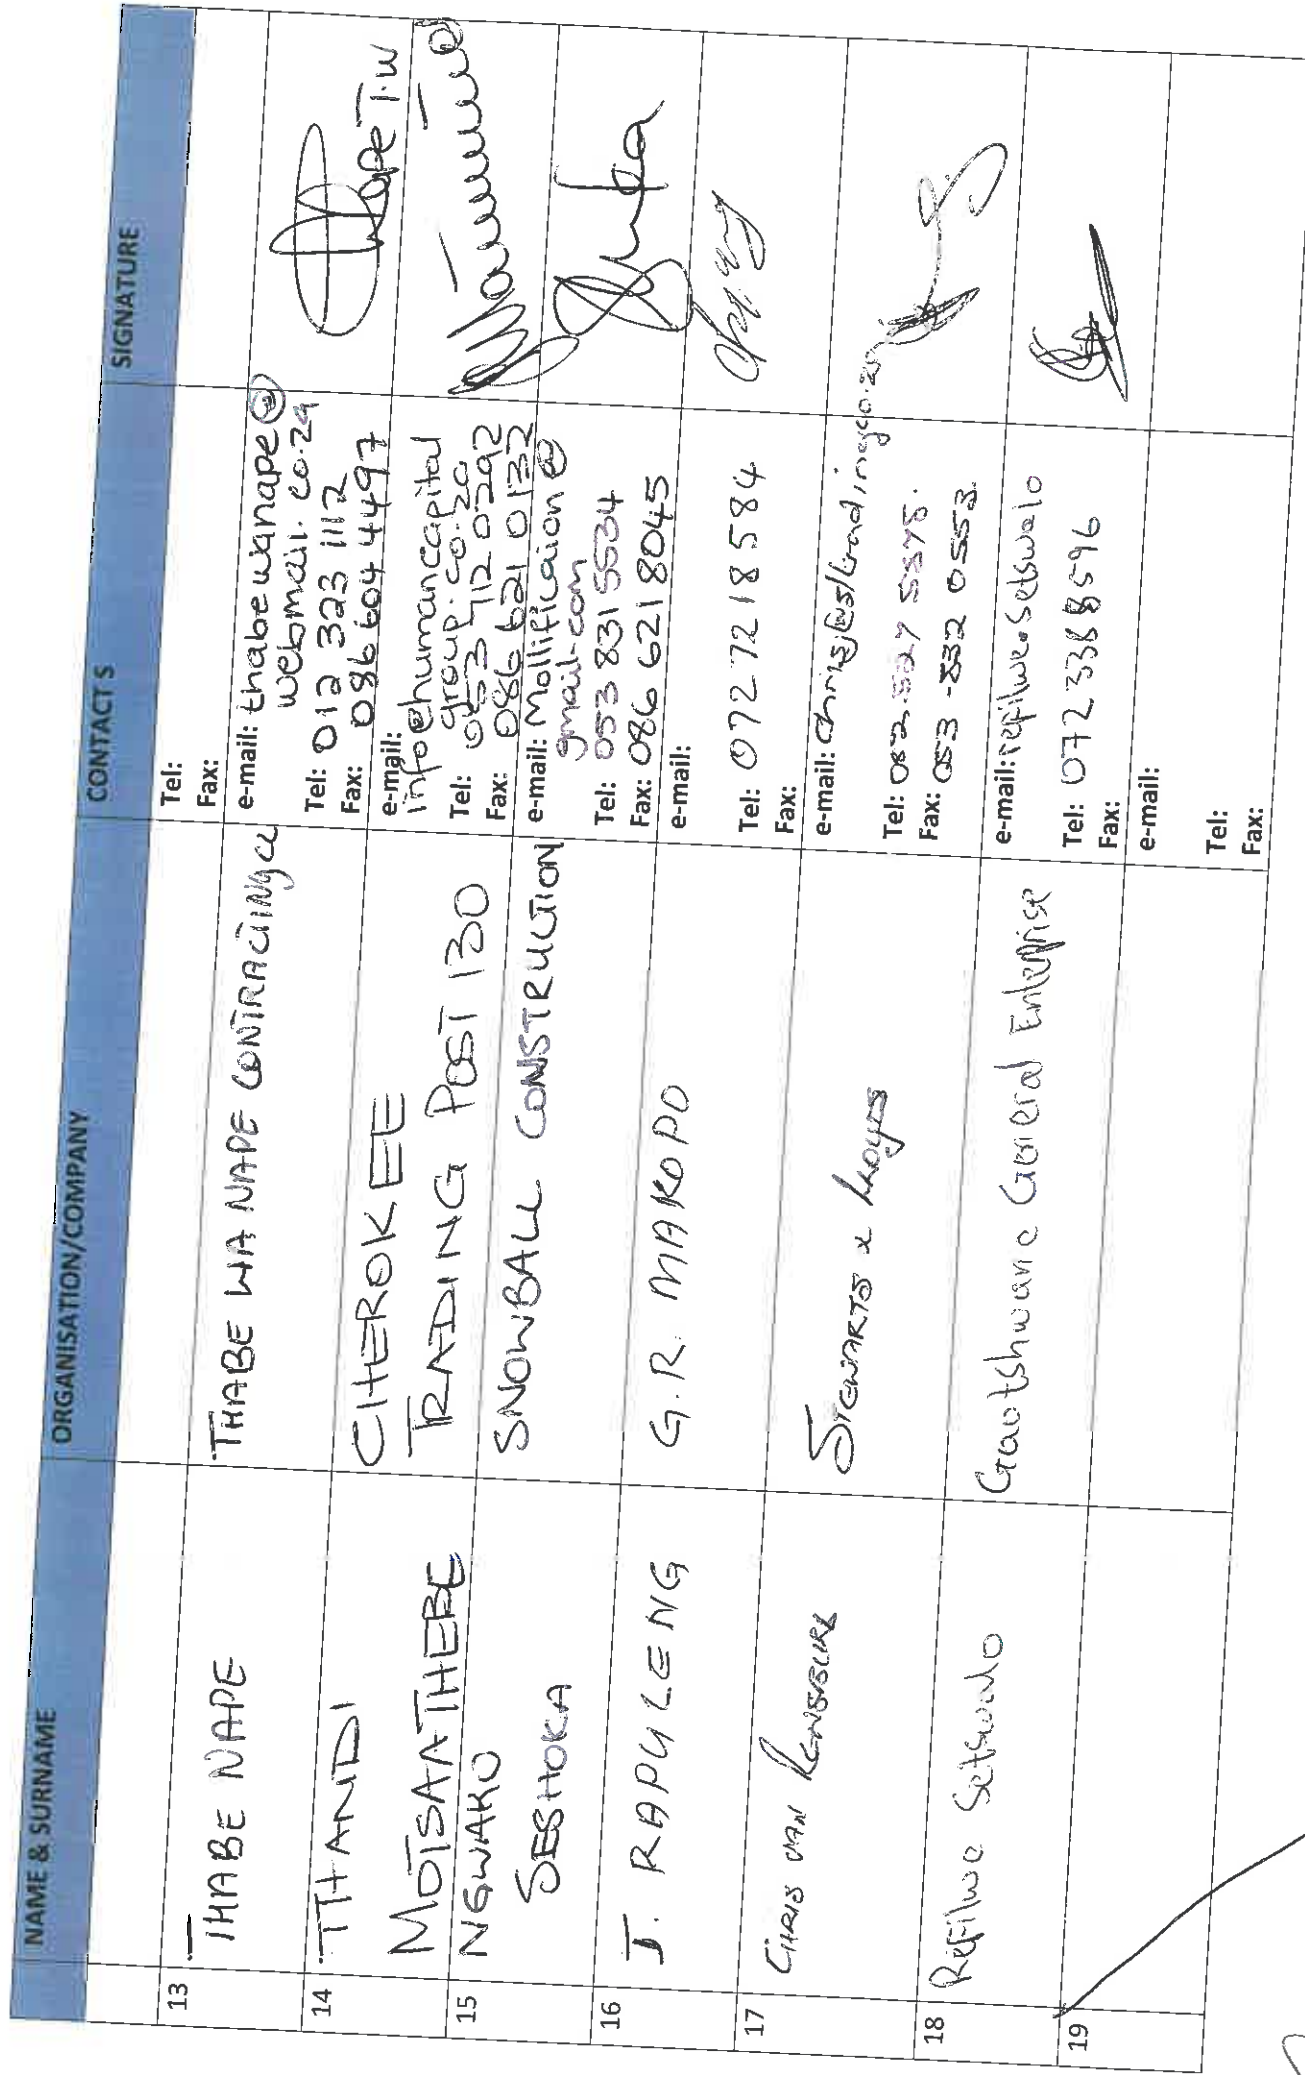 NAME & SURNAME ORGANISATION/COMPANY CONTACT S SIGNATURE
Tel:
Fax:
13 THABE NAPE THABE WA NAPE CONTRACTING cc e-mail: thabewanape@
webmail.co.za
Tel: 012 323 1112
Fax: 086 604 4497
Nape T.W
14 THANDI
MOTSAATHEBE
CHEROKEE
TRADING POST 130
e-mail:
info@humancapital
group.co.za
Tel: 053 712 0292
Fax: 086 621 0132
15 NGWAKO
SESHOKA
SNOWBALL CONSTRUCTION
e-mail: Mollificaion@
gmail.com
Tel: 053 831 5534
Fax: 086 621 8045
16 J. RAPULENG G.R. MAKOPO e-mail:
Tel: 072 721 8584
Fax:
17 CHRIS VAN RENSBURG STEWARTS & e-mail:
Tel: 082 527
Fax: 053 -832 0553
18 Refilwe Setswalo Gaotshwane General Enterprise e-mail: refilwe.setswalo
Tel: 072 338 8596
Fax:
19 e-mail:
Tel:
Fax: